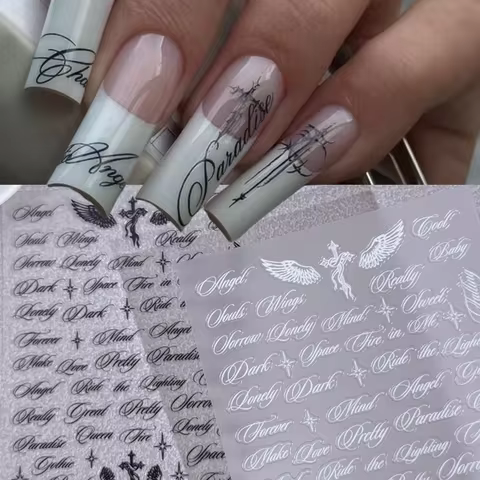 Cha
Ange
Paradise
Angel
Souls Wings Really
Sorrow Lonely Mind
Dark Space Fire in
Lonely Dark Ride
Forever Mind Angel
Make Love Pretty Paradise
Angel Ride the Lighting
Really Great Pretty Sorrow
Paradise Queen Fire
Gothic
Cool
Angel Baby
Souls Wings Really
Sorrow Lonely Mind Sweet
Dark Space Fire in Me
Lonely Dark Ride the
Forever Mind Angel
Make Love Pretty Paradise
Ride the Lighting